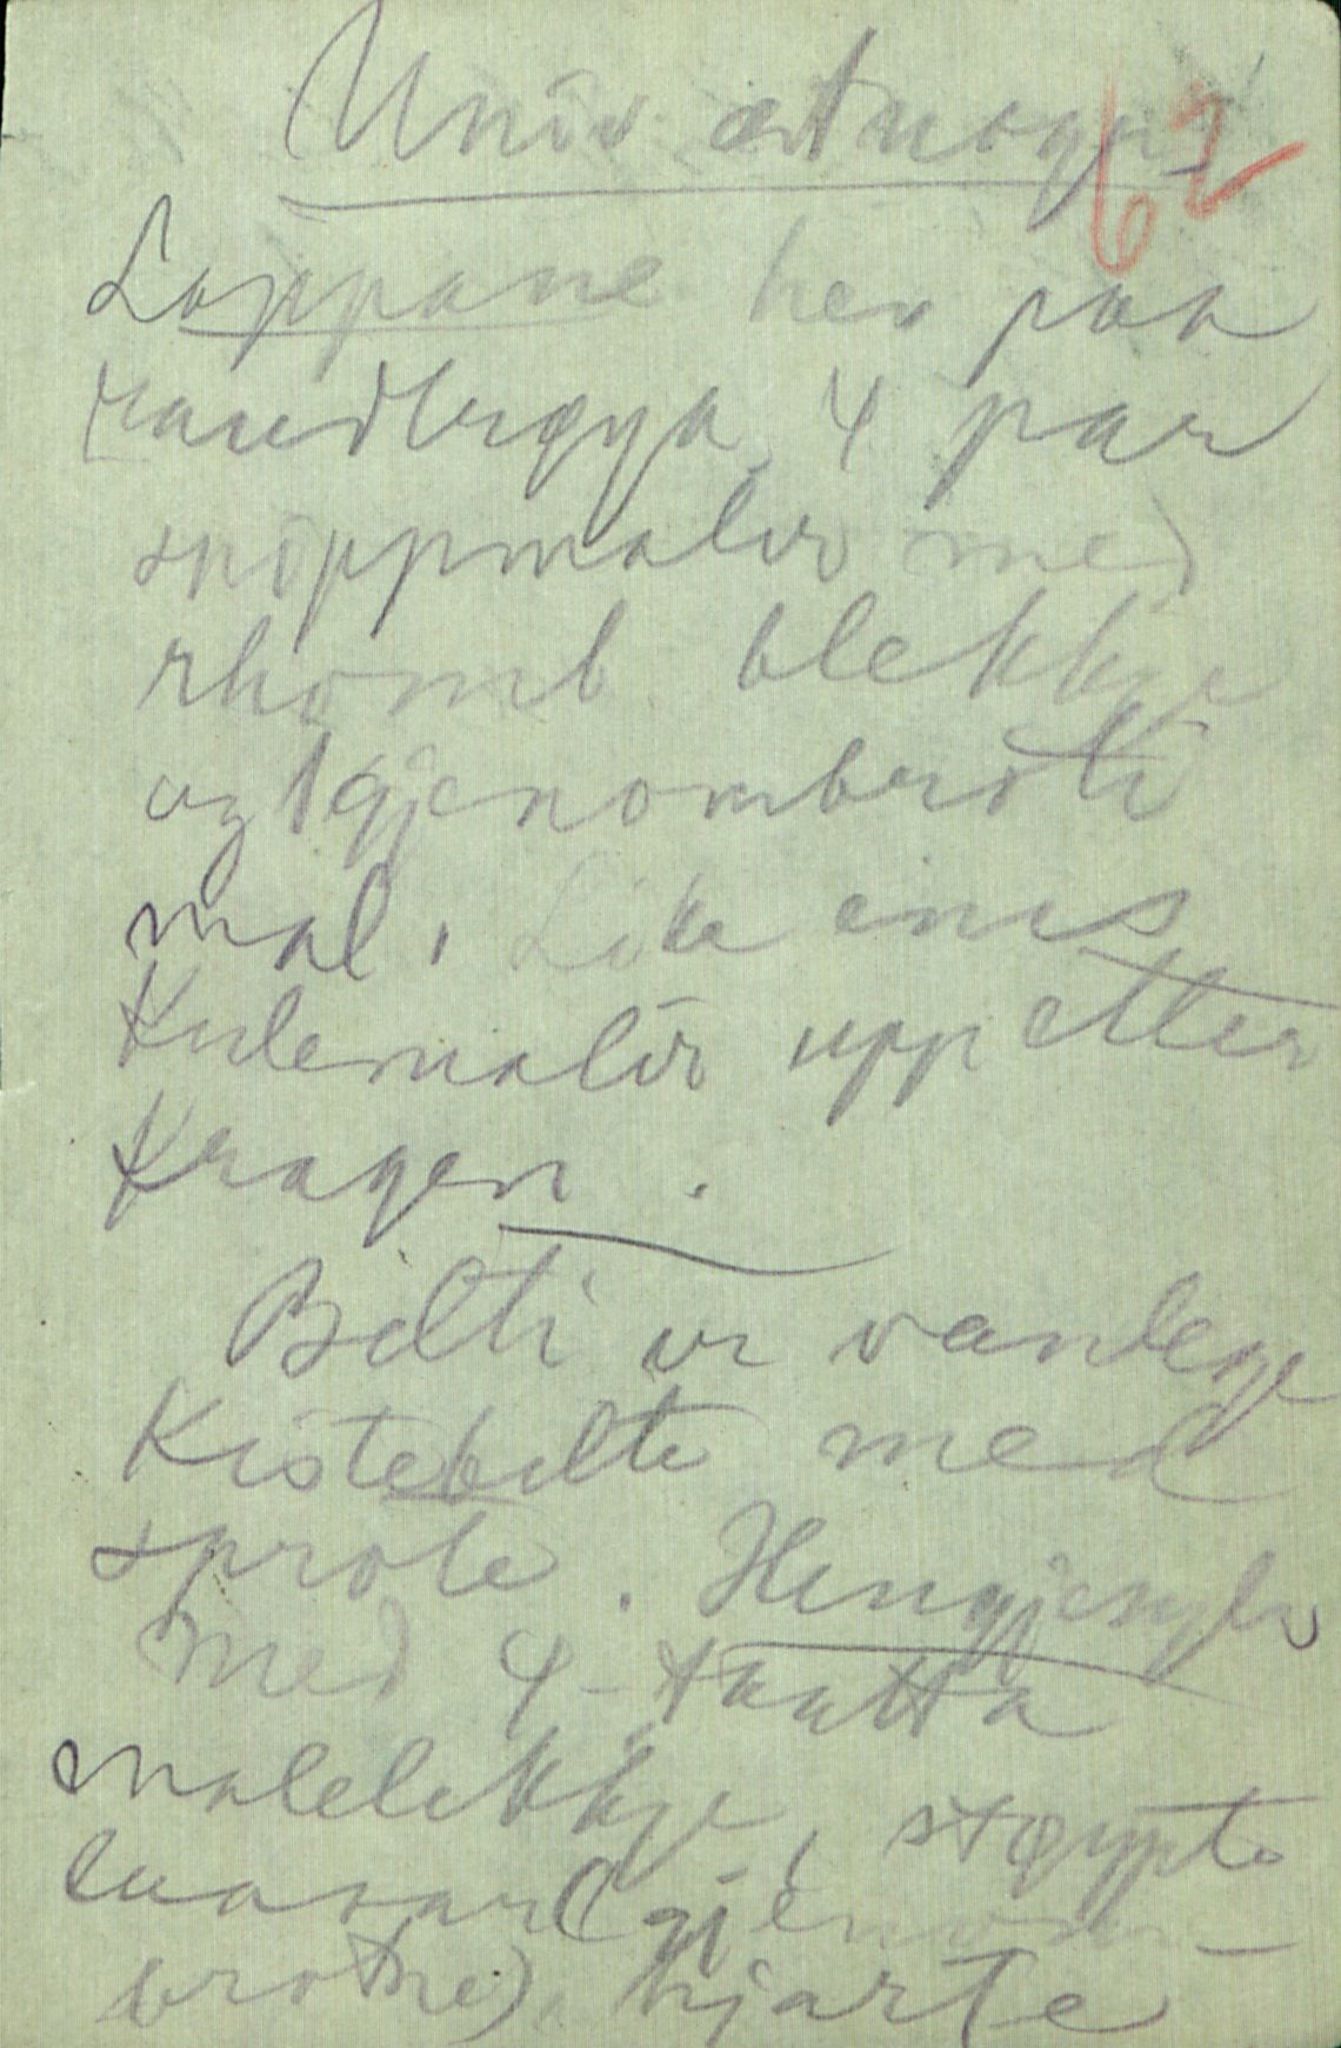 Univ. etnogr.
62
Loppone hev paa
raudbrøya 4 par
snøppmalir med
rhomb. blekkje
og 1 gjenombroti
mal. Like eins
Kulemalir upp etter
Kragen.
Belti er vanlege
Kistebelte med
sprote. Hengjesylv
med 4-taatta
malelekkje, støypte
laavar (gjenom-
brotne) hjarte